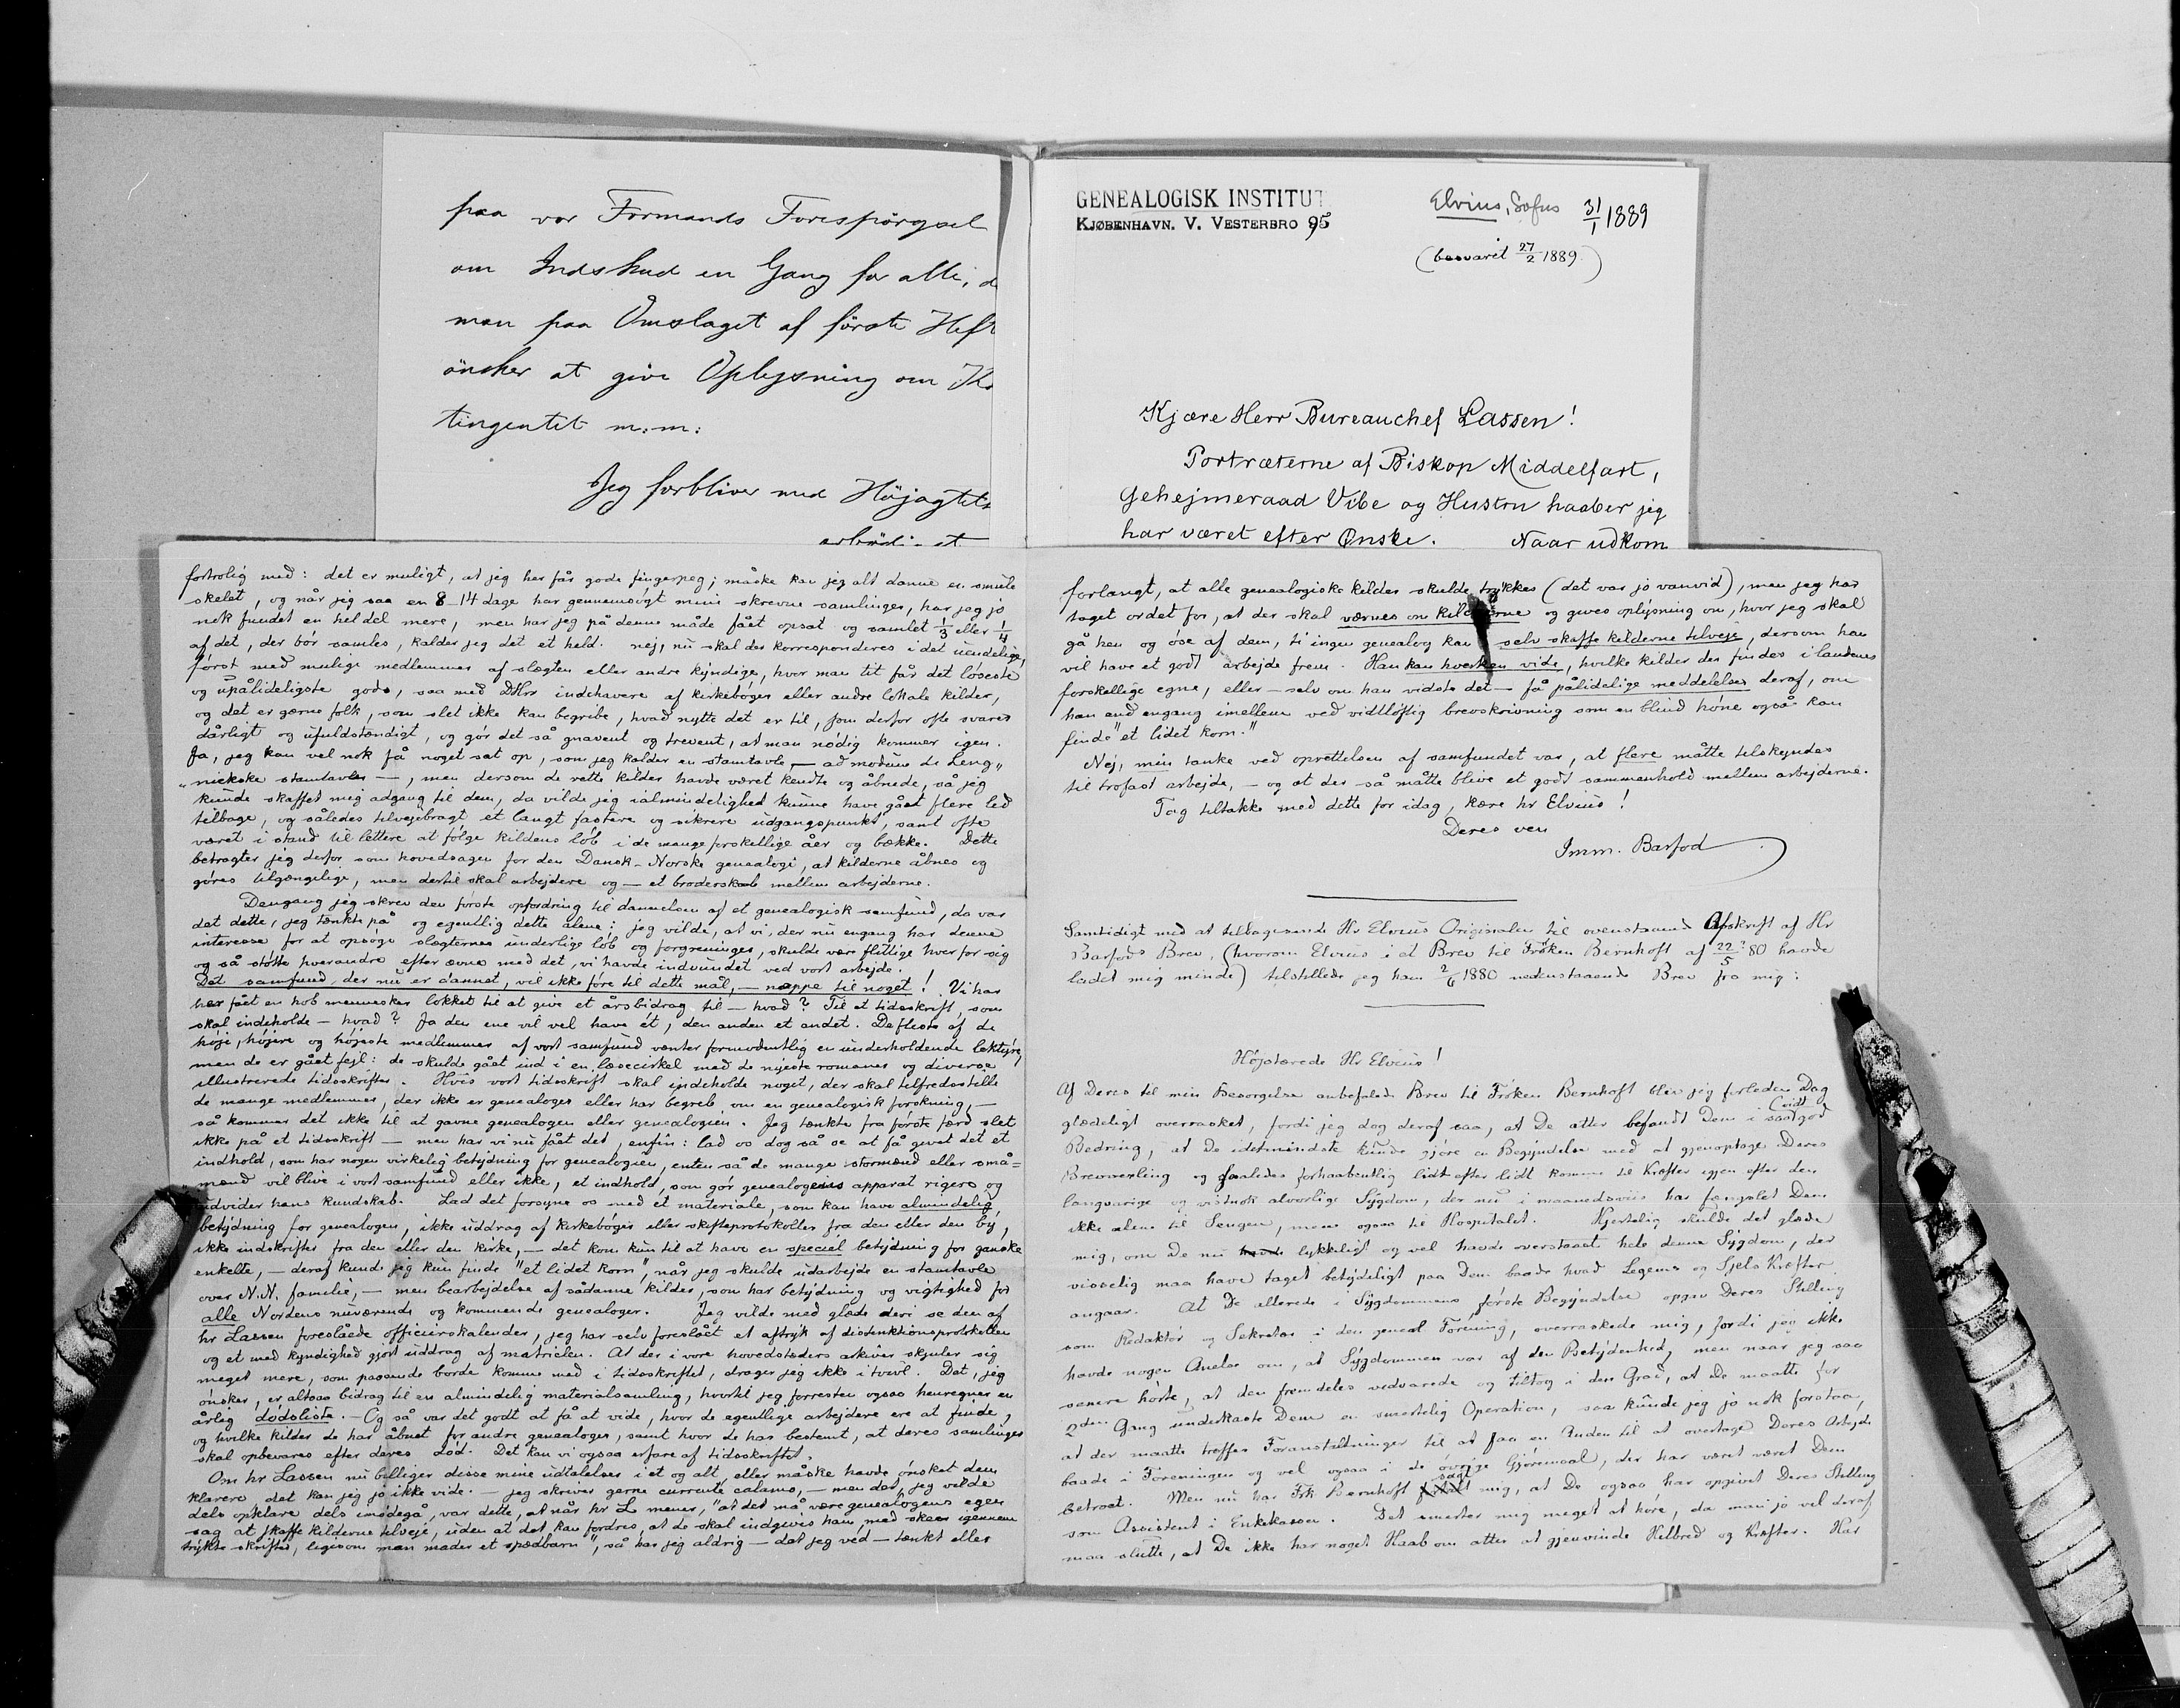 paa vor Formands Forespörgsel
om Indskud en Gang for alle, d
man paa Omslaget af förste Heft
önsker at give Oplysning om Ko
tingentet m:m:
Jeg forbliver med Höjagtels
GENEALOGISK INSTITUT
KJØBENHAVN. V. VESTERBRO 95
Elvius, Sofus 31/1 1889
(besvaret 27/2 1889)
Kjære Herr Bureauchef Lassen!
Portræterne af Biskop Middelfart,
Gehejmeraad Vibe og Hustru haaber jeg
har været efter Ønske. Naar udkom
fortrolig med: det er muligt, at jeg her får gode fingerpeg; måske kan jeg alt danne en smule
skelet, og når jeg saa en 8-14 dage har gennemsøgt mine skrevne samlinger, har jeg jo
nok fundet en hel del mere, men har jeg på denne måde fået opsat og samlet 1/3 eller 1/4
af det, der bör samles, kalder jeg det et held. nej, nu skal der korresponderes i det uendelige,
först med mulige medlemmer af slægten eller andre kyndige, hvor man tit får det löseste
og upålideligste gods, saa med DHrr indehavere af kirkebøger eller andre lokale kilder,
og det er gærne folk, som slet ikke kan begribe, hvad nytte det er til, som derfor ofte svarer
dårligt og ufuldstændigt, og gör det så gnavent og trevent, at man nödig kommer igen.
Ja, jeg kan vel nok få noget sat op, som jeg kalder en stamtavle — ad modum de Leng„
„nickske stamtavler —, men dersom de rette kilder havde været kendte og åbnede, så jeg
kunde skaffet mig adgang til dem, da vilde jeg i almindelighed kunne have gået flere led
tilbage, og således tilvejebragt et langt fastere og sikrere udgangspunkt, samt ofte
været i stand til lettere at følge kildens löb i de mange forskellige åer og bække. Dette
betragter jeg derfor som hovedsagen for den Dansk-Norske genealogi, at kilderne åbnes og
göres tilgængelige, men dertil skal arbejdere og — et broderskab mellem arbejderne.
Dengang jeg skrev den förste opfordring til dannelsen af et genealogisk samfund, da var
det dette, jeg tænkte på og egentlig dette alene: jeg vilde, at vi, der nu engang har denne
interesse for at opsøge slægternes underlige löb og forgreninger, skulde være flittige hver for sig
og så støtte hverandre efter ævne med det, vi havde indvundet ved vort arbejde.
Det samfund, der nu er dannet, vil ikke føre til dette mål, — næppe til noget! Vi har
her fået en hob mennesker lokket til at give et årsbidrag til — hvad? Til et tidsskrift, som
skal indeholde — hvad? Ja den ene vil vel have ét, den anden et andet. De fleste af de
höje, höjere og höjeste medlemmer af vort samfund venter formodentlig en underholdende lektyre,
men de er gået fejl: de skulde gået ind i en læsecirkel med de nyeste romaner og diverse
illustrerede tidsskrifter. Hvis vort tidsskrift skal indeholde noget, der skal tilfredsstille
de mange medlemmer, der ikke er genealoger eller har begreb om en genealogisk forskning, —
så kommer det ikke til at gavne genealogen eller genealogien. Jeg tænkte fra første færd slet
ikke på et tidsskrift — men har vi nu fået det, enfin: lad os dog så se at få givet det et
indhold, som har nogen virkelig betydning for genealogien, enten så de mange stormænd eller små=
mænd vil blive i vort samfund eller ikke, et indhold, som gör genealogens apparat rigere og
udvider hans kundskab. Lad det forsyne os med et materiale, som kan have almindelig
betydning for genealogen, ikke uddrag af kirkebøger eller skifteprotokoller fra den eller den by,
ikke indskrifter fra den eller den kirke, — det kom kun til at have en speciel betydning for ganske
enkelte, — deraf kunde jeg kun finde "et lidet korn", når jeg skulde udarbejde en stamtavle
over N.N. familie, — men bearbejdelse af sådanne kilder, som har betydning og vigtighed for
alle Nordens nuværende og kommende genealoger. Jeg vilde med glæde deri se den af
hr Lassen foreslåede officierskalender, jeg har selv foreslået et aftryk af distinktionsprotokollen
og et med kyndighed gjort uddrag af matriclen. At der i vore hovedstæders arkiver skjuler sig
meget mere, som passende borde komme med i tidsskriftet, drager jeg ikke i tvivl. Det, jeg
ønsker, er altsaa bidrag til en almindelig materialsamling, hvortil jeg forresten ogsaa henregner en
årlig dødsliste. — Og så var det godt at få at vide, hvor de egentlige arbejdere ere at finde,
og hvilke kilder de har åbnet for andre genealoger, samt hvor de har bestemt, at deres samlinger
skal opbevares efter deres död. Det kan vi ogsaa erfare af tidsskriftet.
Om hr Lassen nu billiger disse mine udtalelser i et og alt, eller måske havde ønsket dem
klarere det kan jeg jo ikke vide. — jeg skriver gerne currente calamo, — men det, jeg vilde
dels opklare dels imødegå, var dette, at når hr L mener, "at det må være genealogens egen
sag at skaffe kilderne tilveje, uden at det kan fordres, at de skal indgives ham med skeer igennem
trykte skrifter, ligesom man mader et spædbarn", så har jeg aldrig — det jeg ved — tænkt eller
forlangt, at alle genealogiske kilder skulde trykkes (det var jo vanvid), men jeg har
taget ordet for, at der skal værnes om kilderne og gives oplysning om, hvor jeg skal
gå hen og öse af dem, ti ingen genealog kan selv skaffe kilderne tilveje, dersom han
vil have et godt arbejde frem. Han kan hverken vide, hvilke kilder der findes i landenes
forskellige egne, eller — selv om han vidste det — få pålidelige meddelelser deraf, om
han end engang imellem ved vidtløftig brevskrivning som en blind høne også kan
finde "et lidet korn."
Nej, min tanke ved oprettelsen af samfundet var, at flere måtte tilskyndes
til trofast arbejde, — og at der så måtte blive et godt sammenhold mellem arbejderne.
Tag tiltakke med dette for idag, kære hr Elvius!
Deres ven
Imm. Barfod
Samtidigt med at tilbagesende Hr Elvius Originalen til ovenstaaende Afskrift af Hr
Barfods Brev, (hvorom Elvius i et Brev til Fröken Bernhoft af 22?/5 80 havde
ladet mig minde) tilstillede jeg ham 2/6 1880 nedenstaaende Brev fra mig:
Højstærede Hr Elvius!
Af Deres til min Besorgelse anbefalede Brev til Fröken Bernhoft blev jeg forleden Dag
glædeligt overrasket, fordi jeg dog deraf saa, at De atter befandt Dem i saavidt god
Bedring, at De idetmindste kunde gjöre en Begyndelse med at gjenoptage Deres
Brevvexling og saaledes forhaabentlig lidt efter lidt komme til Kræfter igjen efter den
langvarige og vistnok alvorlige Sygdom, der nu i maanedsvis har fængslet Dem
ikke alene til Sengen, men ogsaa til Hospitalet. Hjertelig skulde det glæde
mig, om De nu havde lykkeligt og vel havde overstaaet hele denne Sygdom, der
visselig maa have taget betydeligt paa Dem baade hvad Legems og Sjels Kræfter
angaar. At De allerede i Sygdommens første Begyndelse opgav Deres Stilling
som Redaktør og Sekretær i den geneal Forening, overraskede mig, fordi jeg ikke
havde nogen Anelse om, at Sygdommen var af den Betydenhed, men naar jeg saa
senere hörte, at den fremdeles vedvarede og tiltog i den Grad, at De maatte for
2den Gang underkaste Dem en smertelig Operation, saa kunde jeg jo nok forstaa,
at der maatte træffes Foranstaltninger til at faa en Anden til at overtage Deres Arbejde
baade i Foreningen og vel ogsaa i de øvrige Gjöremaal, der har været været Dem
betroet. Men nu har Frk Bernhoft sagt mig, at De ogsaa har opgivet Deres Stilling
som Assistent i Enkekassen. Det smerter mig meget at höre, da man jo vel deraf
maa slutte, at De ikke har noget Haab om atter at gjenvinde Helbred og Kræfter. Har